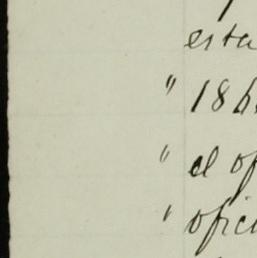 esta
" 186
" el of
" ofici